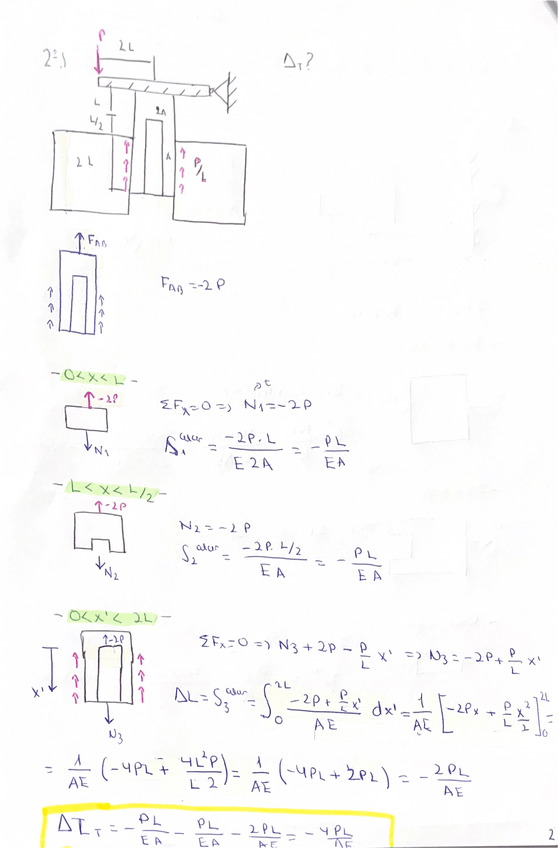 2º.)
P
2L
Δ_T?
L
L/2
2A
2L
A
P/L
F_AB
F_AB = -2P
- 0<x<L -
-2P
ΣF_x=0 => N_1 = -2P
N_1
= -2P·L / E 2A = - PL / EA
- L<x<L/2 -
-2P
N_2 = -2P
N_2
= -2P·L/2 / EA = - PL / EA
- 0<x'<2L -
-2P
ΣF_x=0 => N_3 + 2P - P/L x' => N_3 = -2P + P/L x'
x'
N_3
ΔL = = ∫_0^{2L} (-2P + P/L x') / AE dx' = 1/AE [-2Px + P/L x²/2]_0^{2L} =
= 1/AE (-4PL + 4L²P / L 2) = 1/AE (-4PL + 2PL) = - 2PL / AE
ΔL_T = - PL/EA - PL/EA - 2PL/AE = - 4PL/AE
2